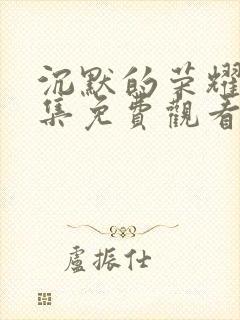 沉默的荣耀
集免費觀看
盧振仕